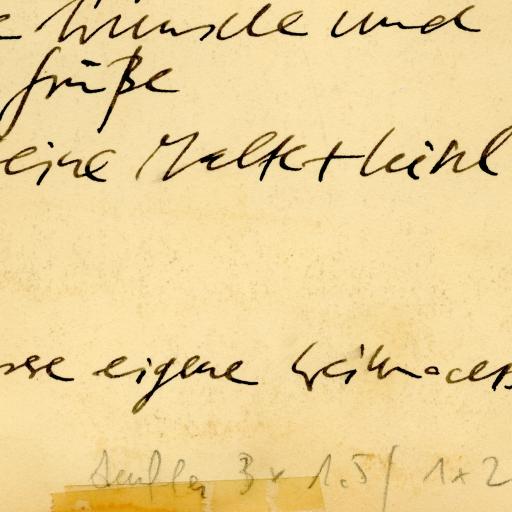 e Wünsche und
Grüße
eine Malk + 
sere eigene Weihnachts
3 x 1.5 / 1 x 2